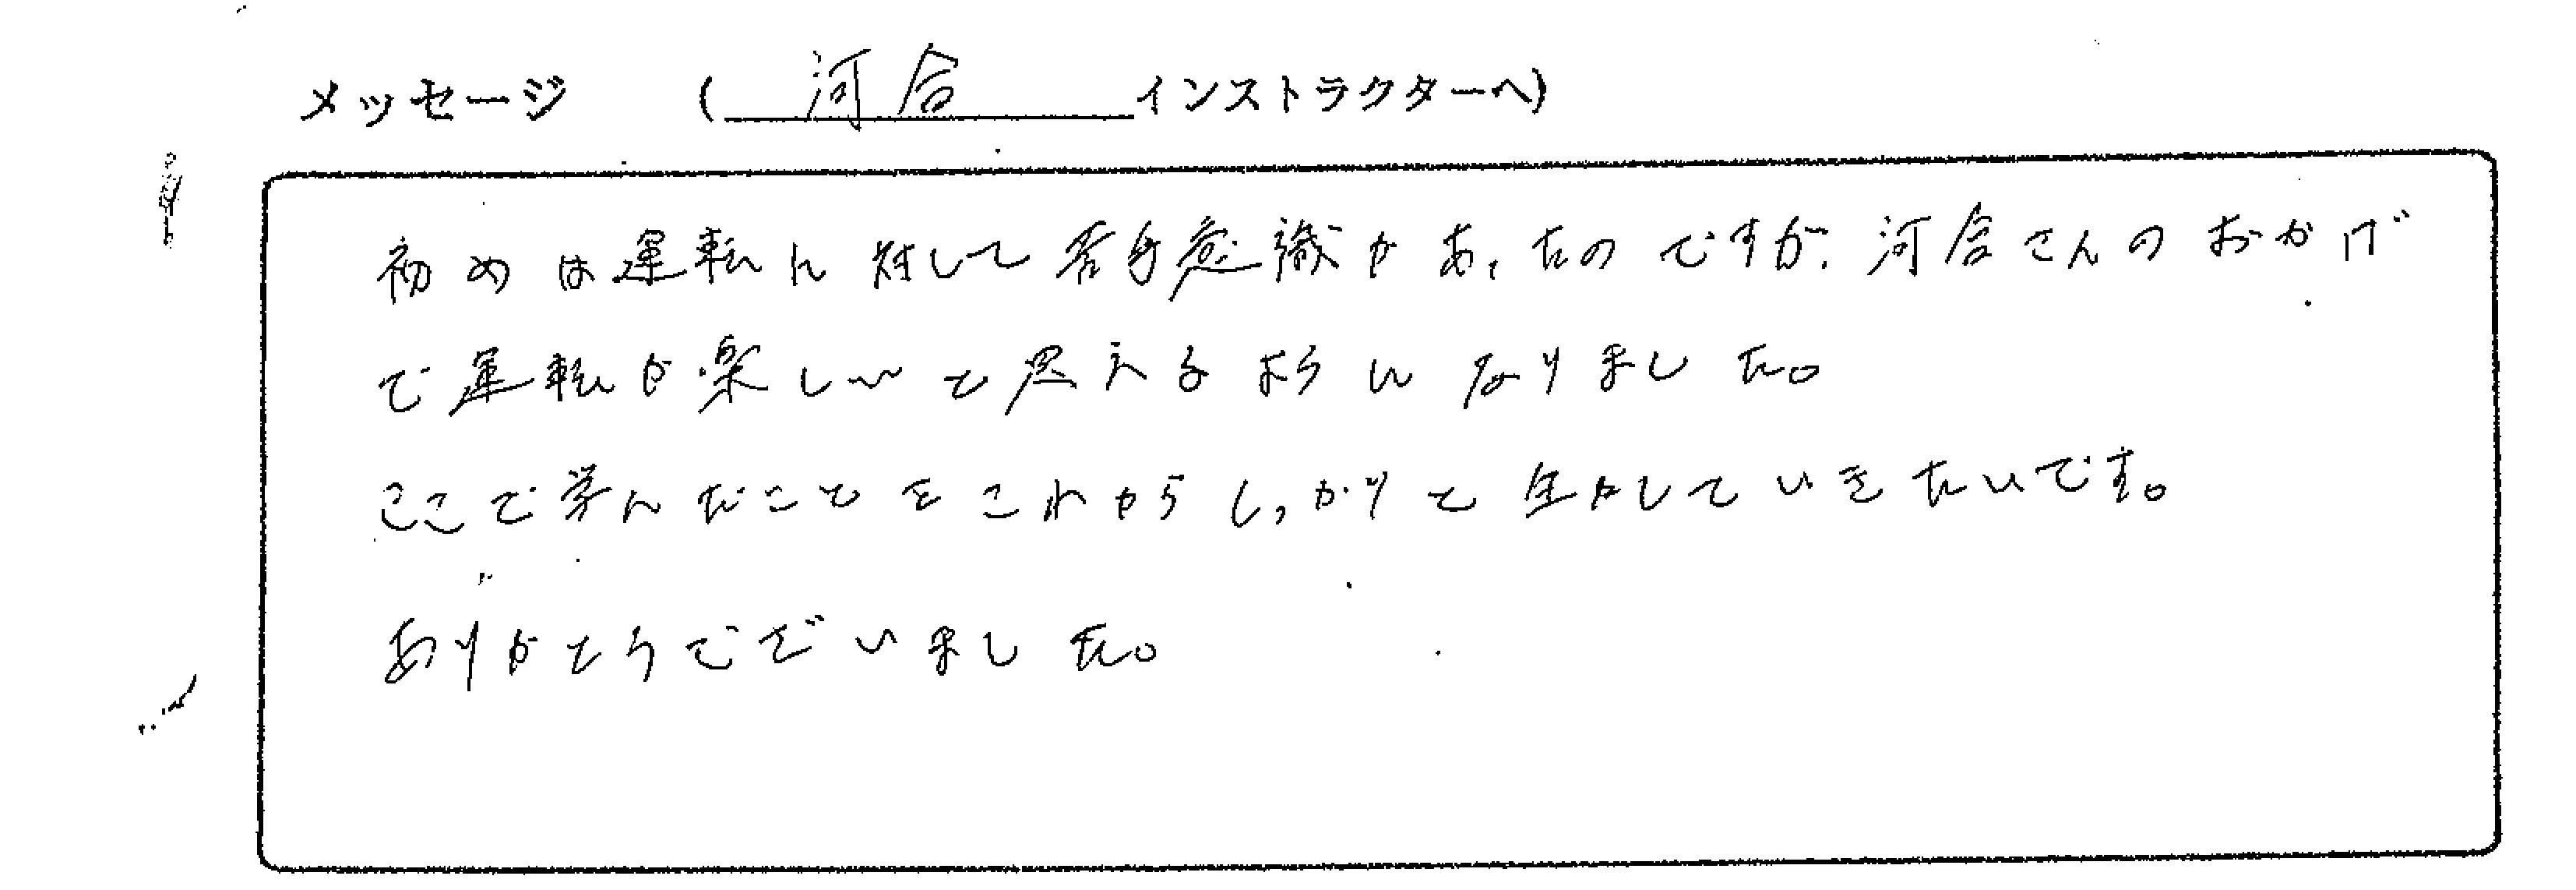 メッセージ （河合インストラクターへ）
初めは運転に対して苦手意識があったのですが、河合さんのおかげ
で運転が楽しいと思えるようになりました。
ここで学んだことをこれからしっかりと生かしていきたいです。
ありがとうございました。